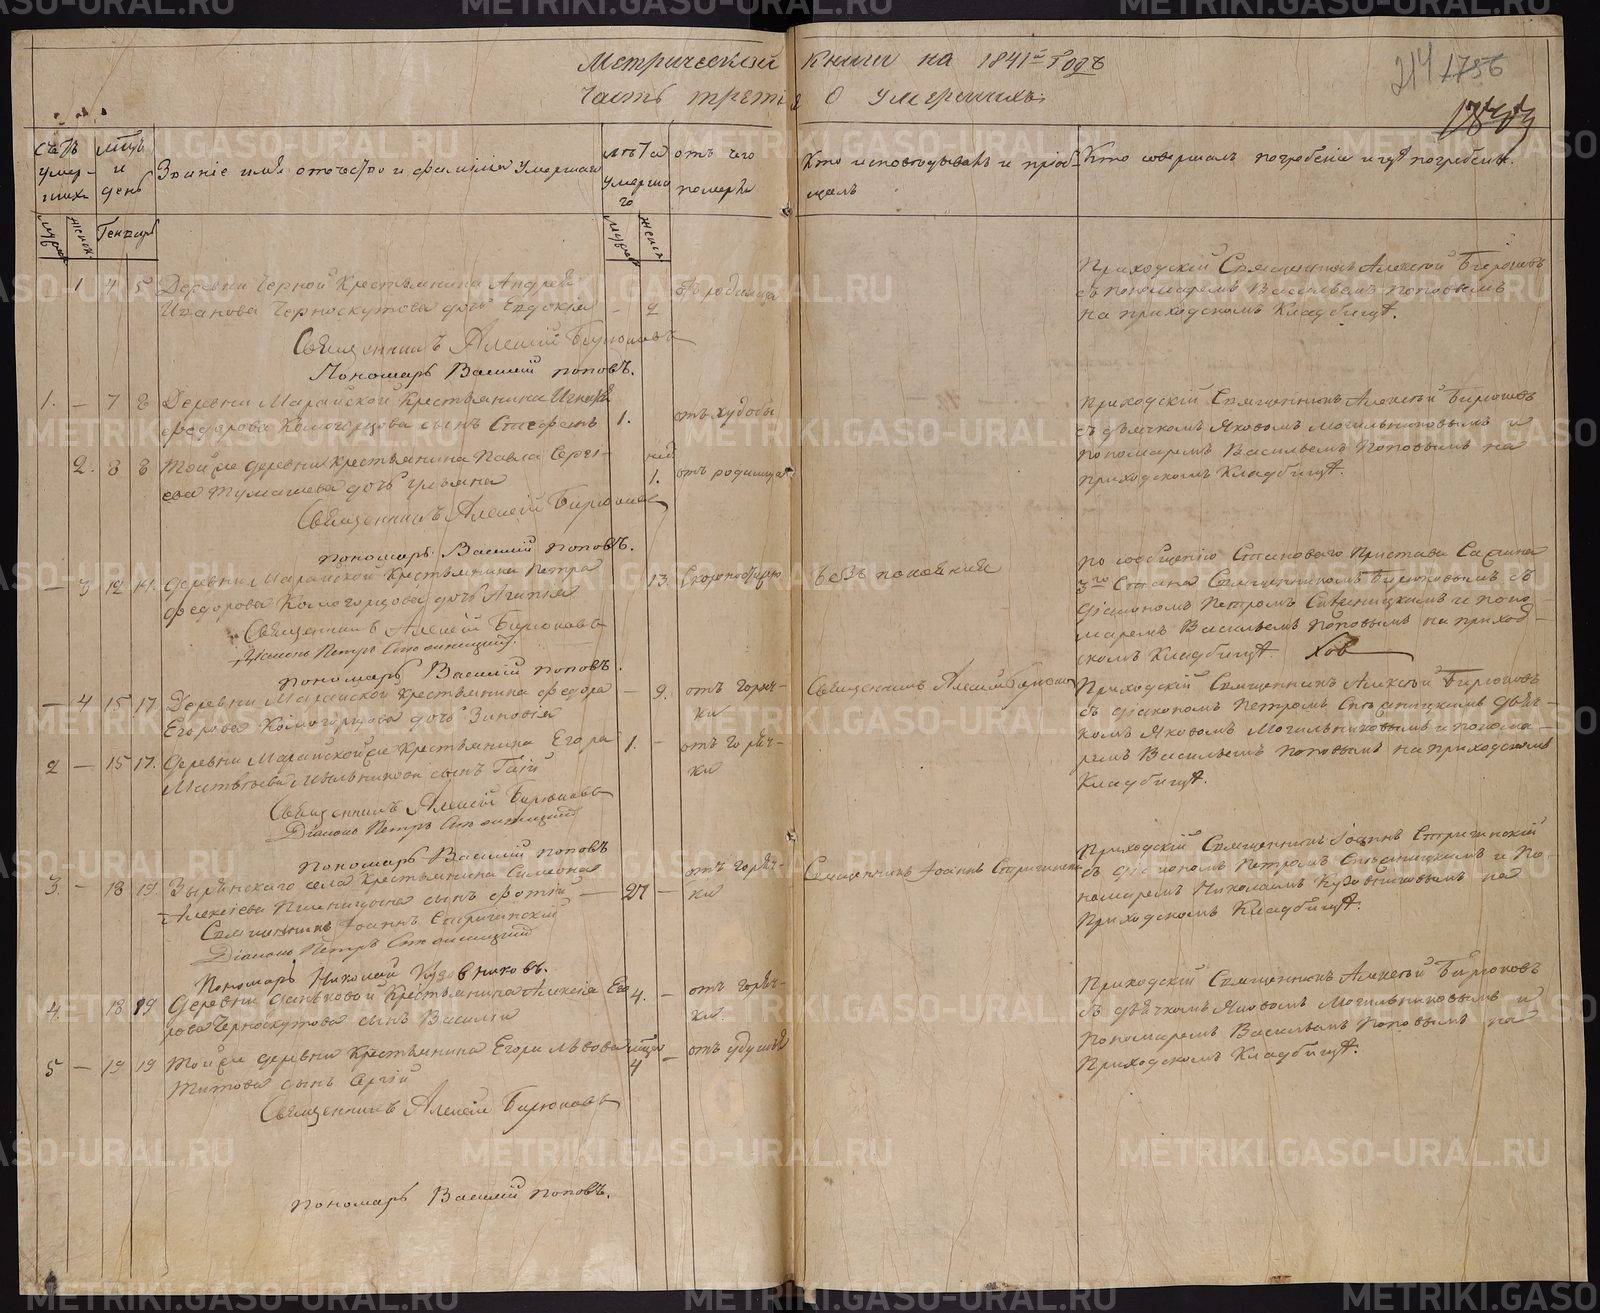 Метрической Книги на 1841й Годъ
Часть третія О умершихъ
214 1756
Счетъ умер-шихъ
Мцъ и день
Званіе имя отчество и фамилія Умершаго
Лѣта умершаго
отъ чего померъ
Кто исповѣдывалъ и пріобщалъ
Кто совершалъ погребеніе и гдѣ погребенъ.
мужск женск
Генварь
мужск женск
1 4 5 Деревни Черной Крестьянина Андрея
Иванова Черноскутова дочь Евдокія - 2 отъ родимца
Приходскій Священникъ Алексѣй Бирюковъ
съ пономаремъ Васильемъ Поповымъ
на приходскомъ Кладбищѣ.
Священникъ Алексій Бирюковъ
Пономарь Василій Поповъ.
1. - 7 8 Деревни Марайской Крестьянина
Федорова Комогорцова сынъ Стефанъ 1. отъ худобы
Приходскій Священникъ Алексѣй Бирюковъ
съ дьячкомъ Яковомъ Могильниковымъ и
пономаремъ Васильемъ Поповымъ на
приходскомъ Кладбищѣ.
2. 8 8 Той же деревни крестьянина Павла Серге-
ева Тумашева дочь Ульяна нед 1. отъ родимца
Священникъ Алексій Бирюковъ
пономарь Василій Поповъ.
- 3 12 14. деревни Марайской Крестьянина Петра
Федорова Комогорцова дочь Агапия 13. Скоропостижно
безъ покаянія
По сообщенію Становаго Пристава
3го Стана Священникомъ Бирюковымъ съ
діакономъ Петромъ и поно-
маремъ Васильемъ Поповымъ на приход-
скомъ Кладбищѣ.
Священникъ Алексій Бирюковъ
Діаконъ Петръ
пономарь Василій Поповъ.
- 4 15 17. Деревни Марайской крестьянина Федора
Егорова Комогорцова дочь Зиновія - 9. отъ горяч-
ки
Священникъ Алексій Бирюковъ
Приходскій Священникъ Алексѣй Бирюковъ
съ діакономъ Петромъ дьяч-
комъ Яковомъ Могильниковымъ и понома-
ремъ Васильемъ Поповымъ на приходскомъ
Кладбищѣ.
2 - 15 17. Деревни Марайской же Крестьянина Егора
Матвѣева сынъ 1. - отъ горяч-
ки
Священникъ Алексій Бирюковъ
Діаконъ Петръ
Пономарь Василій Поповъ
3 - 18 19. Зырянскаго села Крестьянина Симеона
Алексіева сынъ Фотій - 27 - отъ горяч-
ки
Священникъ Іоаннъ
Приходскій Священникъ Іоаннъ
съ діакономъ Петромъ и По-
номаремъ Николаемъ Кузовниковымъ на
Приходскомъ Кладбищѣ.
Священникъ Іоаннъ
Діаконъ Петръ
Пономарь Николай Кузовниковъ.
4. - 18 19 Деревни Крестьянина Алексія Его-
рова Черноскутова сынъ Василій 4. - отъ горяч-
ки.
Приходскій Священникъ Алексѣй Бирюковъ
съ дьячкомъ Яковомъ Могильниковымъ и
пономаремъ Васильемъ Поповымъ на
Приходскомъ Кладбищѣ.
5 - 19 19 Той же деревни Крестьянина Егора Львова
Титова сынъ Сергій 4 - отъ удушья
Священникъ Алексій Бирюковъ
пономарь Василій Поповъ.
METRIKI.GASO-URAL.RU